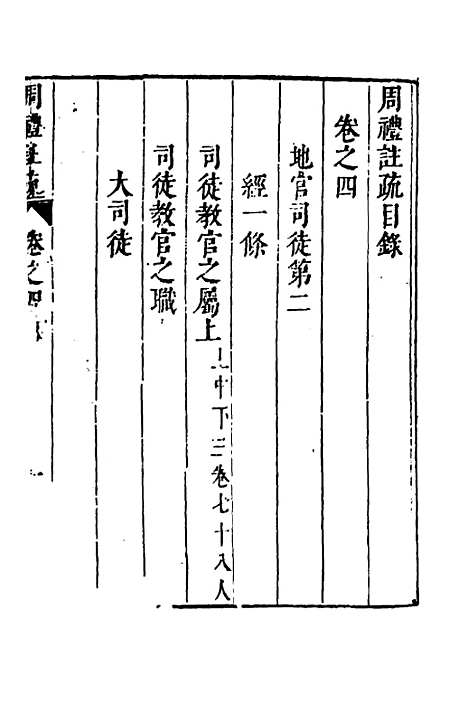 周禮註疏目錄
卷之四
地官司徒第二
經一條
司徒教官之屬上上中下三卷七十八人
司徒教官之職
大司徒
周禮註疏 卷之四